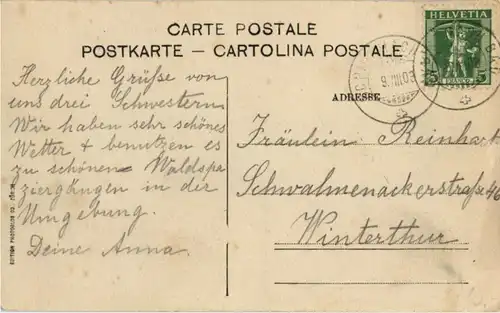 CARTE POSTALE
POSTKARTE – CARTOLINA POSTALE
HELVETIA
5 5
9.VIII.09
ADRESSE
Herzliche Grüße von
uns drei Schwestern.
Wir haben sehr schönes
Wetter & benutzen es
zu schönen Waldspa
ziergängen in der
Umgebung.
Deine Anna.
Fräulein Reinhart
Schwalmenackerstraße 46
Winterthur
EDITION PHOTOGLOB CO.